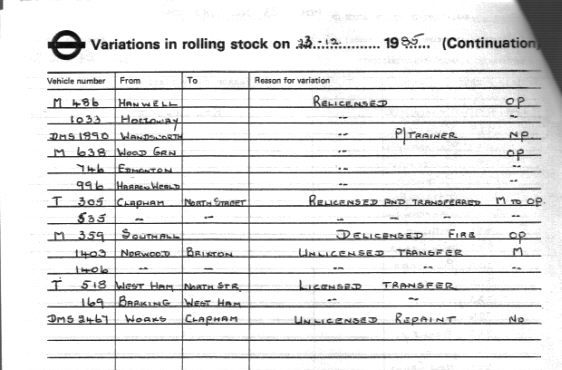 Variations in rolling stock on 23-12 1985 (Continuation)
Vehicle number From To Reason for variation
M 486 HANWELL RELICENSED OP
1033 HOLLOWAY -"- -"-
DMS 1890 WANDSWORTH -"- P/TRAINER NP
M 638 WOOD GRN -"- OP
746 EDMONTON -"- -"-
996 HARROW WEALD -"- -"-
T 305 CLAPHAM NORTH STREET RELICENSED AND TRANSFERRED M TO OP
535 -"- -"- -"- -"- -"- -"-
M 359 SOUTHALL DELICENSED FIRE OP
1403 NORWOOD BRIXTON UNLICENSED TRANSFER M
1406 -"- -"- -"- -"- -"-
T 518 WEST HAM NORTH STR. LICENSED TRANSFER
169 BARKING WEST HAM -"- -"-
DMS 2467 WORKS CLAPHAM UNLICENSED REPAINT No